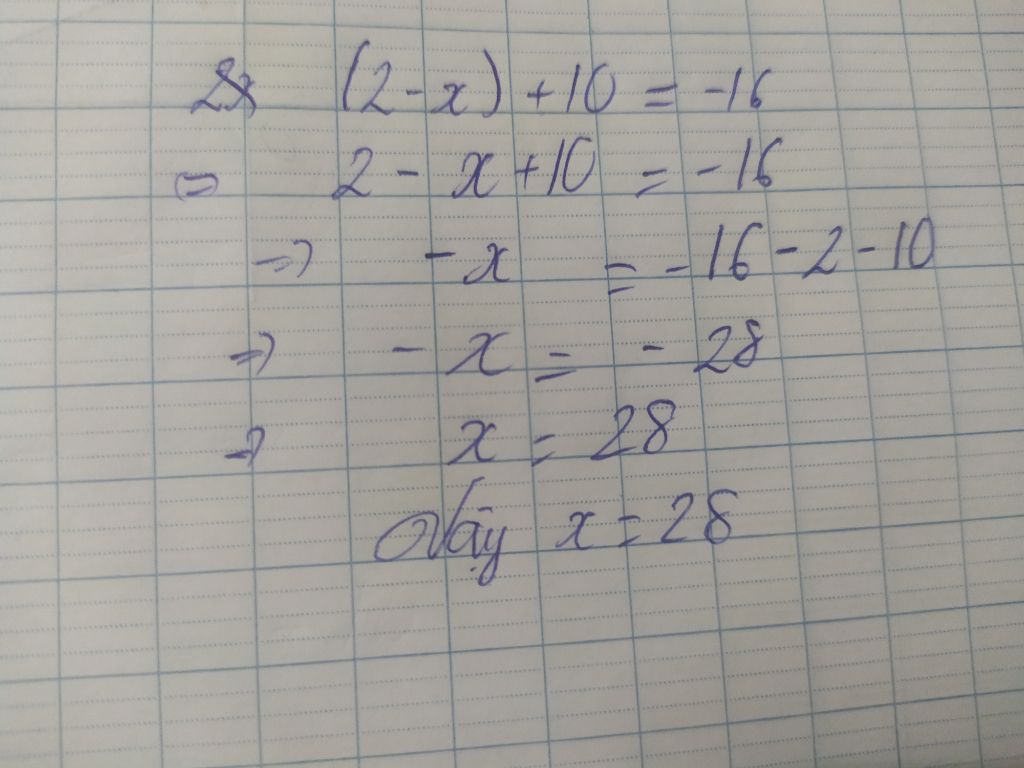 (2-x) + 10 = -16
⇒ 2 - x + 10 = -16
⇒ -x = -16 - 2 - 10
⇒ -x = -28
⇒ x = 28
Vậy x = 28